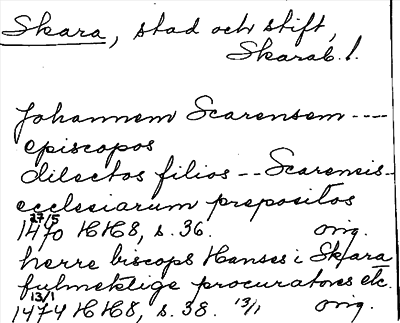 Skara, stad och stift,
Skarab. l.
Johannem Scarensem ----
episcopos
dilectos filios -- Scarensis--
ecclesiarum prepositos
27/5
1470 HH8, s. 36. orig.
herre biscops Hanses i Skara
fulmektige procuratores etc.
13/1
1474 HH8, s. 38. 13/1 orig.